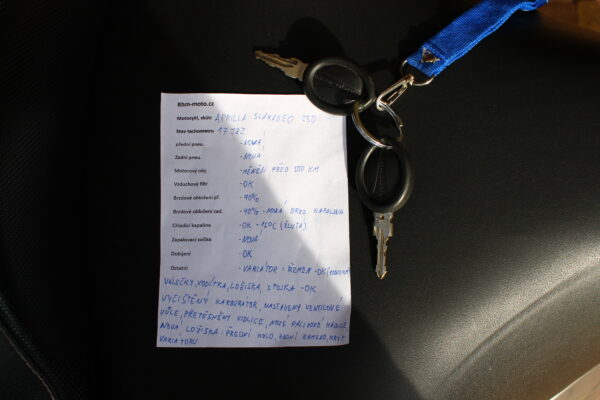 Rhm-moto.cz
Motocykl, skútr APRILIA SCARABEO 250
Stav tachometru 17 282
přední pneu. -NOVÁ
Zadní pneu. -NOVÁ
Motorový olej -MĚNĚN PŘED 500 KM
Vzduchový filtr -OK
Brzdové obložení př. -90%
Brzdové obložení zad. -90% -NOVÁ BRZD. KAPALINA
Chladící kapalina -OK -15°C (ŽLUTÁ)
Zapalovací svíčka -NOVÁ
Dobíjení -OK
Ostatní -VARIÁTOR: ŘEMEN -OK
VÁLEČKY, VODÍTKA, LOŽISKA, SPOJKA -OK
VYČIŠTĚNÝ KARBURÁTOR, NASTAVENY VENTILOVÉ
VŮLE, PŘETĚSNĚNY VIDLICE, NOVÉ PALIVOVÉ HADICE
NOVÁ LOŽISKA: PŘEDNÍ KOLO, ZADNÍ KRYT
VARIÁTORU